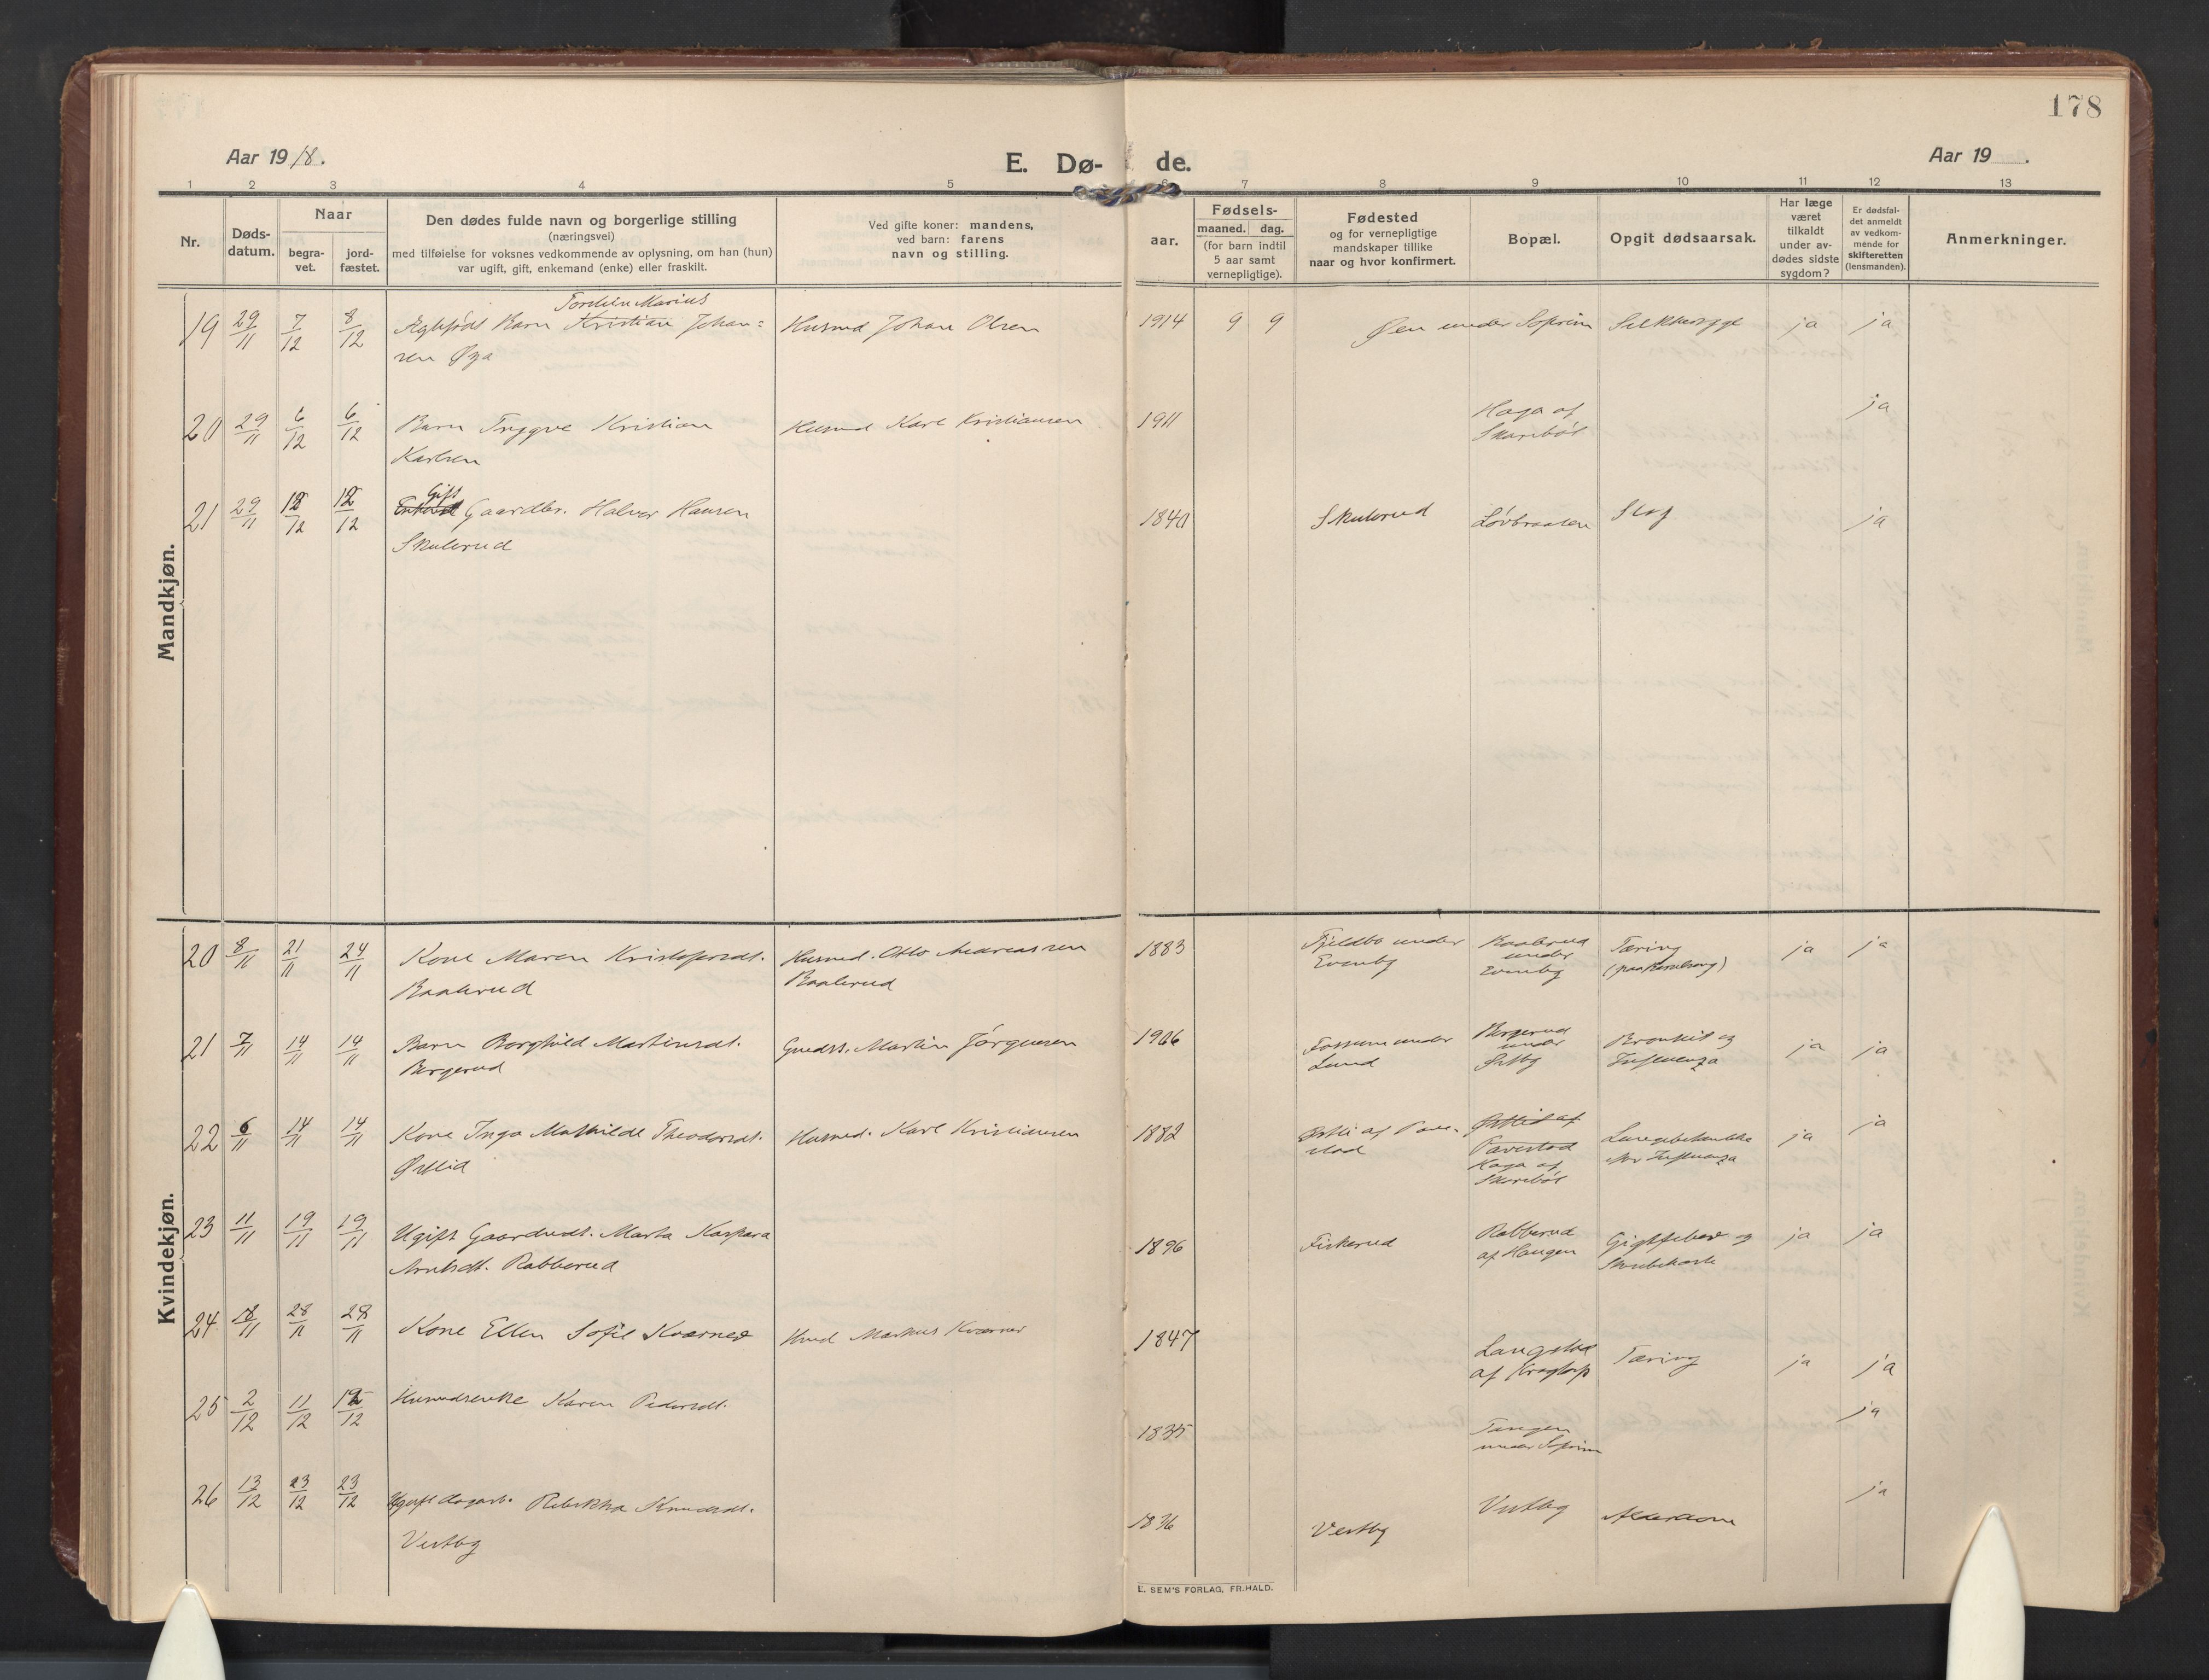 178
Aar 1918.
E. Dø-
de.
Aar 19 .
1 2 3 4 5 6 7 8 9 10 11 12 13
Nr.
Døds-
datum.
Naar
begra-
vet.
jord-
fæstet.
Den dødes fulde navn og borgerlige stilling
(næringsvei)
med tilføielse for voksnes vedkommende av oplysning, om han (hun)
var ugift, gift, enkemand (enke) eller fraskilt.
Ved gifte koner: mandens,
ved barn: farens
navn og stilling.
Fødsels-
aar.
maaned. dag.
(for barn indtil
5 aar samt
vernepligtige).
Fødested
og for vernepligtige
mandskaper tillike
naar og hvor konfirmert.
Bopæl.
Opgit dødsaarsak.
Har læge
været
tilkaldt
under av-
dødes sidste
sygdom?
Er dødsfal-
det anmeldt
av vedkom-
mende for
skifteretten
(lensmanden).
Anmerkninger.
Mandkjøn.
Marius
19 29/11 7/12 8/12 Ægtefødt Barn Kristian Johan= Husmd Johan Olsen 1914 9 9 Øen under Soprim ja ja
sen Øya
20 29/11 6/12 6/12 Barn Trygve Kristian Husmd Karl Kristiansen 1911 Haga af ja
Karlsen Skarebøl
Gift
21 29/11 12/12 12/12 Gaardbr. Halvor Hansen 1840 Skulerud Løvbraaten Slag ja
Skulerud
Kvindekjøn.
20 8/11 21/11 24/11 Kone Maren Kristofersdt. Husmd. Otto Andreassen 1883 Fjeldbo under Baalerud Tæring ja ja
Baalerud Baalerud Evenby under
Evenby
21 7/11 14/11 14/11 Barn Borghild Martinsdt. Gmdss. Martin Jørgensen 1906 Fossum under Bergerud Bronkit og ja ja
Bergerud Lund under Influenza
22 6/11 14/11 14/11 Kone Inga Mathilde Theodorsdt. Husmd. Karl Kristiansen 1882 Østli af Østlid af ja ja
Østlid Tavestad Influenza
Haga af
Skarebøl
23 11/11 19/11 19/11 Ugift Gaardmdt. Marta Kaspara 1896 Fiskerud Rabberud Gigtfeber og ja ja
Rabberud af Haugen
24 18/11 28/11 28/11 Kone Ellen Sofie Kværner Hmd Markus Kværner 1847 Langstad Tæring ja ja
af Kragtorp
25 2/12 11/12 12/12 Husmdsenke Karen Pedersdt. 1835 Tangen ja
under Soprim
26 13/12 23/12 23/12 Ugift Rebekka Knudsdt. 1836 Vestby Vestby Alderdom ja
Vestby
E. SEM'S FORLAG, FR.HALD.